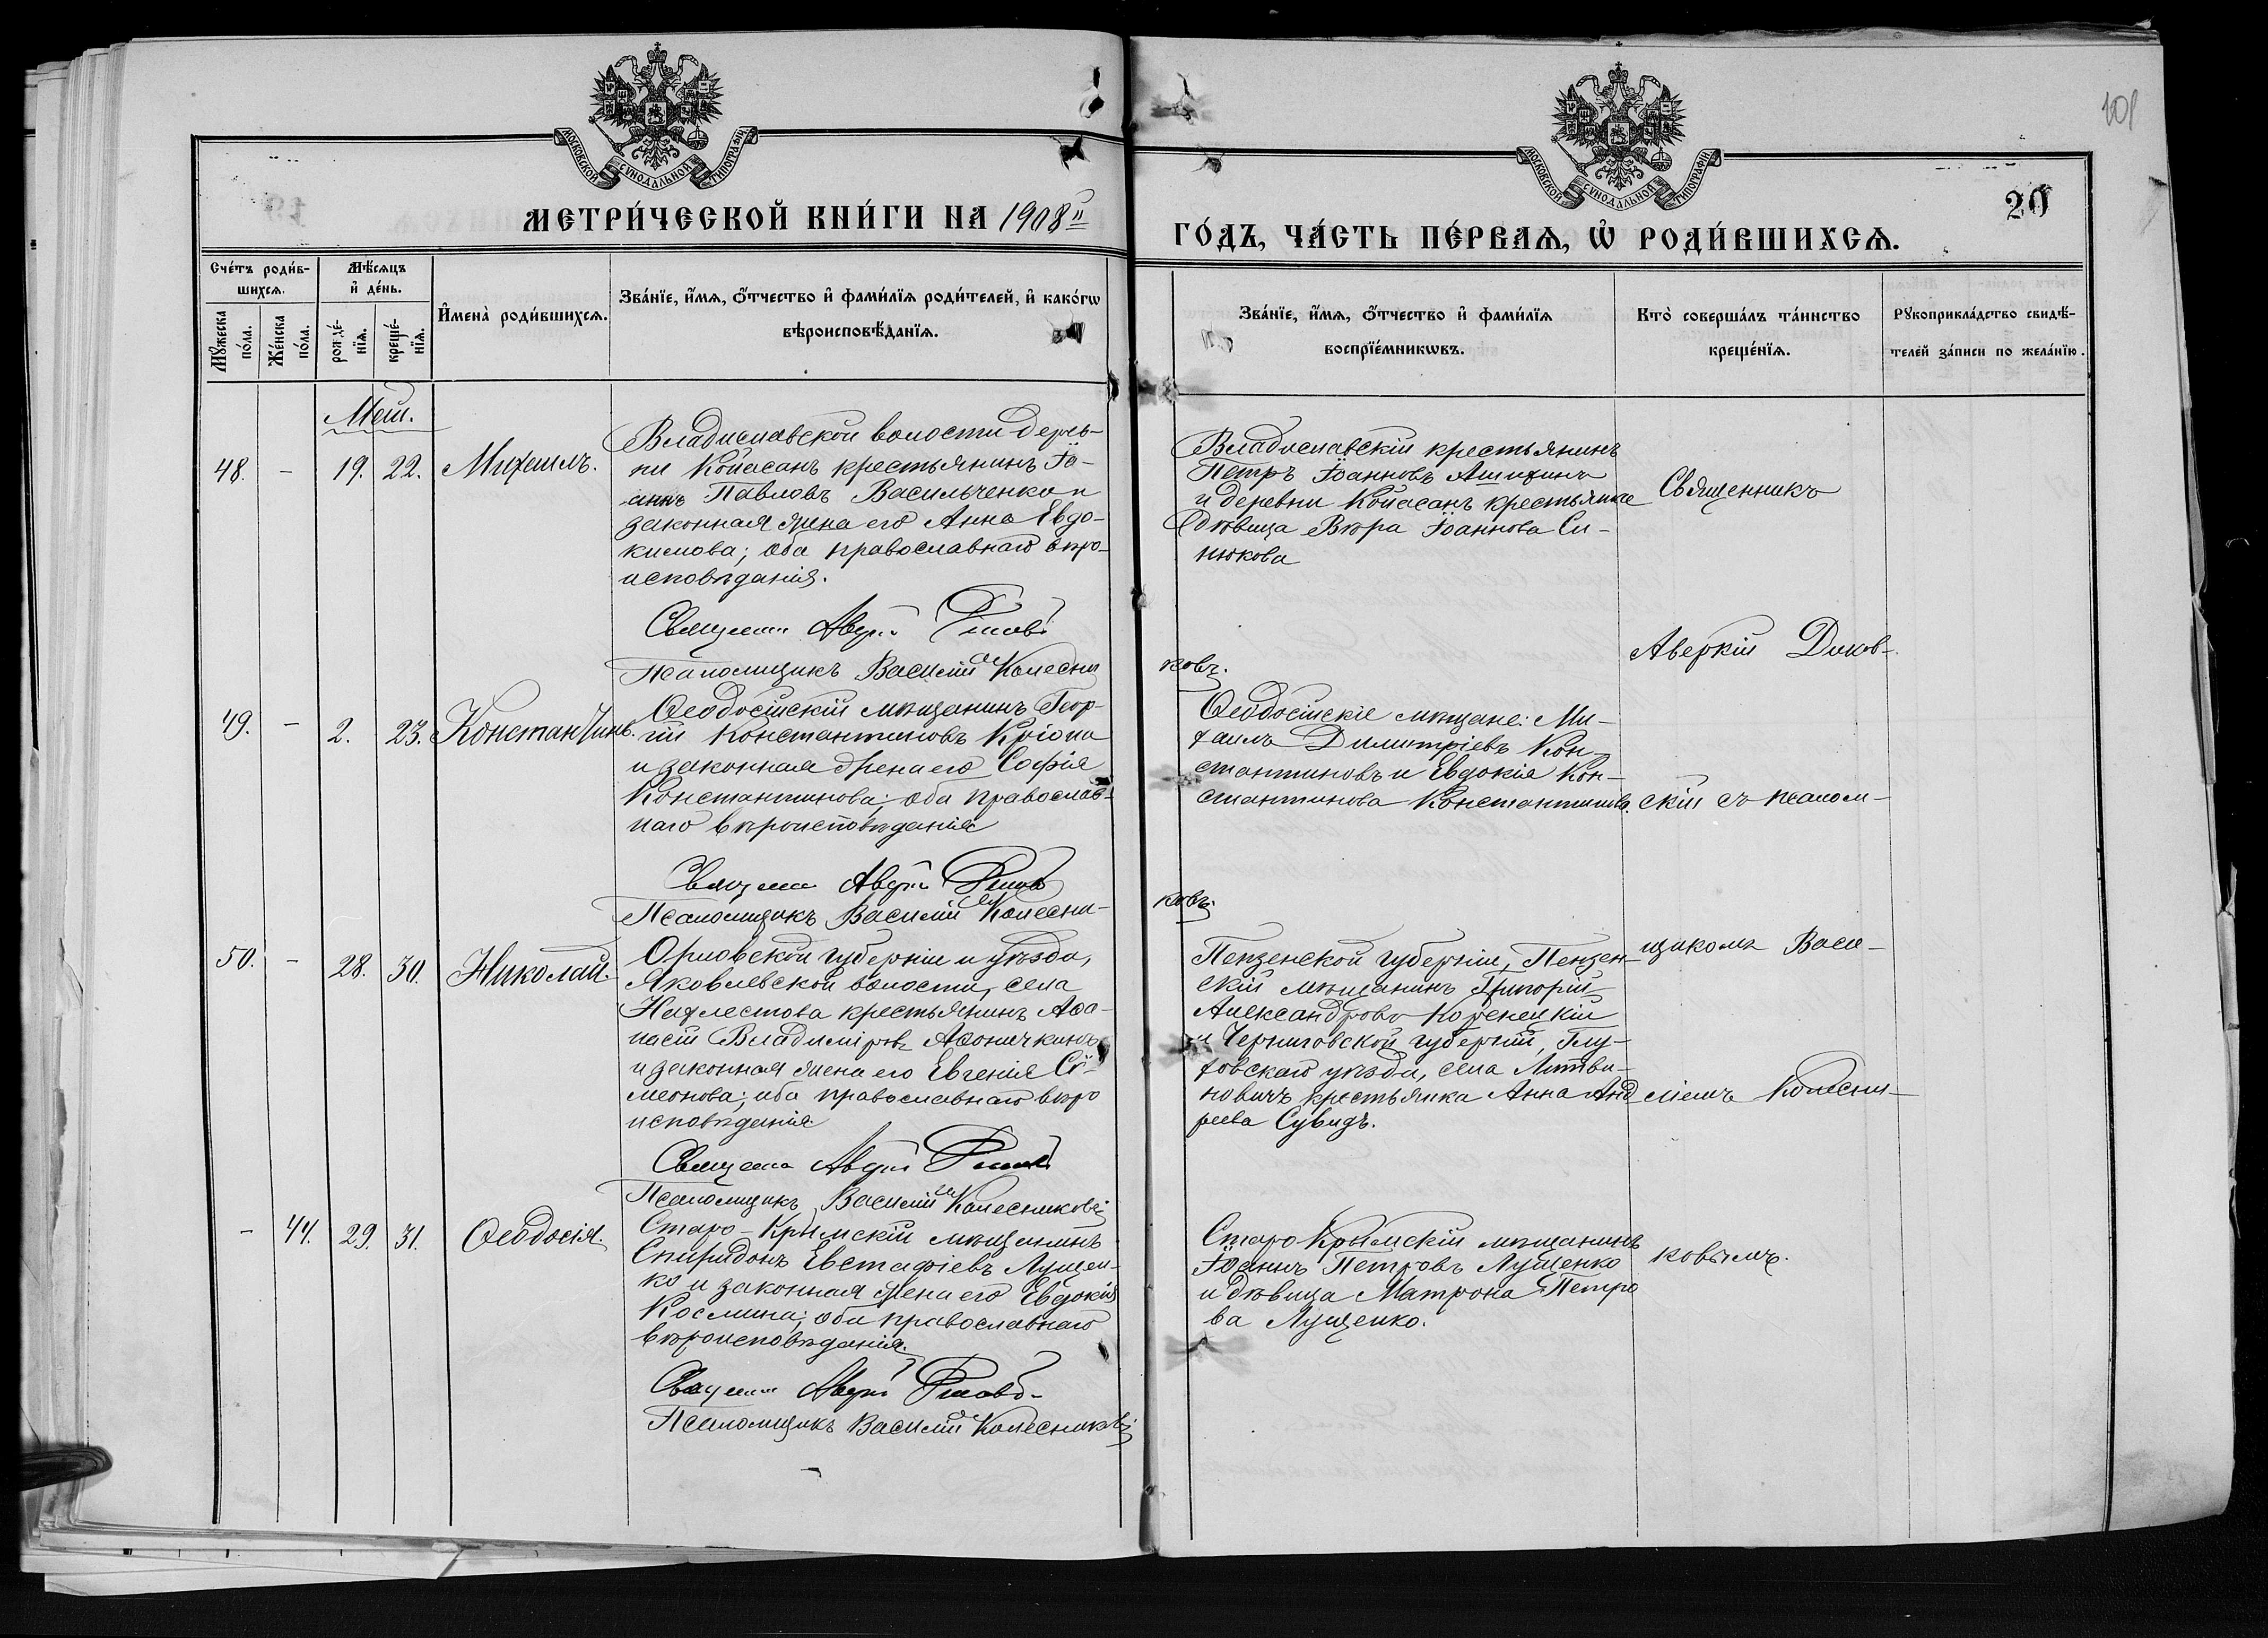 101
МОСКОВСКОЙ СУНОДАЛЬНОЙ ТИПОГРАФІИ.
МОСКОВСКОЙ СУНОДАЛЬНОЙ ТИПОГРАФІИ.
20
МЕТРИ́ЧЕСКОЙ КНИ́ГИ НА 1908й
ГО́ДЪ, ЧА́СТЬ ПЕ́РВАѦ, Ѡ҆ РОДИ́ВШИХСѦ.
Сче́тъ роди́в-
шихсѧ.
Мꙋ́жеска по́ла.
Же́нска по́ла.
Мѣ́сѧцъ
и҆ де́нь.
рожде́-
нїѧ.
креще́-
нїѧ.
И҆мена̀ роди́вшихсѧ.
Зва́нїе, и҆́мѧ, ѻ҆́тчество и҆ фами́лїѧ роди́телей, и҆ како́гѡ
вѣроисповѣ́данїѧ.
Зва́нїе, и҆́мѧ, ѻ҆́тчество и҆ фами́лїѧ
воспрїе́мникѡвъ.
Кто̀ соверша́лъ та́инство
креще́нїѧ.
Рꙋкоприкла́дство свидѣ́-
телей за́писи по жела́нїю.
Маи.
48. - 19. 22. Михаилъ.
Владиславской волости дерев-
ни Койасанъ крестьянинъ Іо-
аннъ Павловъ Васильченко и
законная жена его Анна Евдо-
кимова; оба православнаго вѣро-
исповѣданія.
Псаломщикъ Василій Колесни
ковъ.
Владиславскій крестьянинъ
Петръ Іоанновъ Ашихинъ
и деревни Койасанъ крестьянка
дѣвица Вѣра Іоаннова Си-
нюкова
Священникъ
Аверкій Диков-
49. - 2. 23. Константинъ.
Ѳеодосійскій мѣщанинъ Геор-
гій Константиновъ Кріона
и законная жена его Софія
Константинова; оба православ-
наго вѣроисповѣданія
Псаломщикъ Василій Колесни-
ковъ.
Ѳеодосійскіе мѣщане: Ми-
хаилъ Димитріевъ Кон-
стантиновъ и Евдокія Кон-
стантинова Константинова.
скій съ псалом-
50. - 28. 30. Николай.
Орловской губерніи и уѣзда,
Яковлевской волости, села
крестьянинъ Аѳа-
насій Владиміровъ Аѳоничкинъ
и законная жена его Евгенія Сѵ-
меонова; оба православнаго вѣро
исповѣданія
Псаломщикъ Василій Колесниковъ
Пензенской губерніи, Пензен-
скій мѣщанинъ Григорій
Александровъ Коренецкій
и Черниговской губерніи, Глу-
ховскаго уѣзда, села Литви-
новичъ крестьянка Анна Анд
реева Сувидъ.
щикомъ Васи-
ліемъ Колесни-
- 44. 29. 31. Ѳеодосія.
Старо-Крымскій мѣщанинъ
Спиридонъ Евстафіевъ Лущен-
ко и законная жена его Евдокія
Космина; оба православнаго
вѣроисповѣданія.
Псаломщикъ Василій Колесниковъ
Старо Крымскій мѣщанинъ
Іоаннъ Петровъ Лущенко
и дѣвица Матрона Петро
ва Лущенко.
ковымъ.